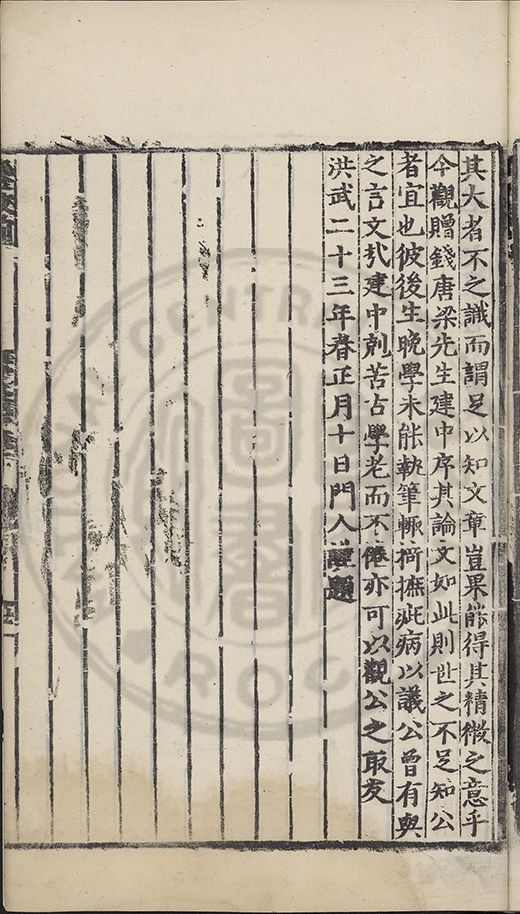 其大者不之識而謂足以知文章豈果能得其精微之意乎
今觀贈錢唐梁先生建中序其論文如此則世之不足知公
者宜也彼後生晚學未能執筆輙掎摭疵病以議公曾有與
之言文㢤建中剋苦占學老而不倦亦可以觀公之取友
洪武二十三年春正月十日門人 題
CENTRAL
ROC